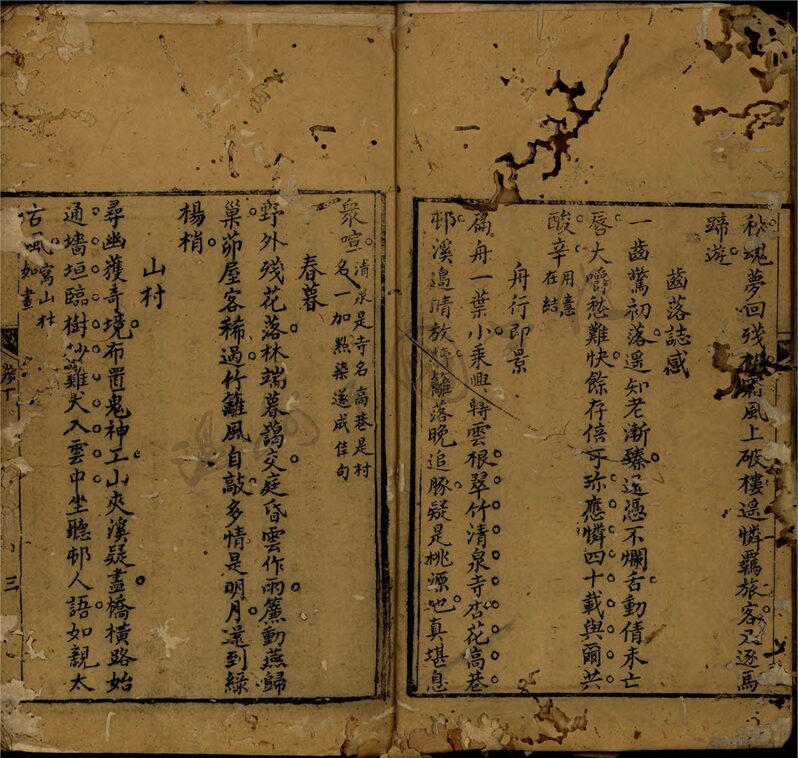 秋魂夢回残 霜風上破樓遥憐羈旅客又逐馬
蹄遊
齒落誌感
一齒驚初落遥知老漸臻還憑不爛舌動倩未亡
唇大嚼愁難快餘存倍可珎應憐四十載與爾共
酸辛用意在結
舟行即景
為舟一葉小乘興轉雲根翠竹清泉寺杏花高巷
邨溪邉晴放 籬落晚追豚疑是桃源地真堪息
衆喧清泉是寺名高巷是村名一加點染遂成佳句
春暮
野外残花落林端暮藹交庭昏雲作雨簾動燕歸
巢茆屋客稀過竹籬風自敲多情是明月還到綠
楊梢
山村
尋幽獲奇境布置鬼神工山夾溪疑盡橋橫路始
通墻垣臨樹杪雞犬入雲中坐聽邨人語如親太
古風寫山村如畫
三